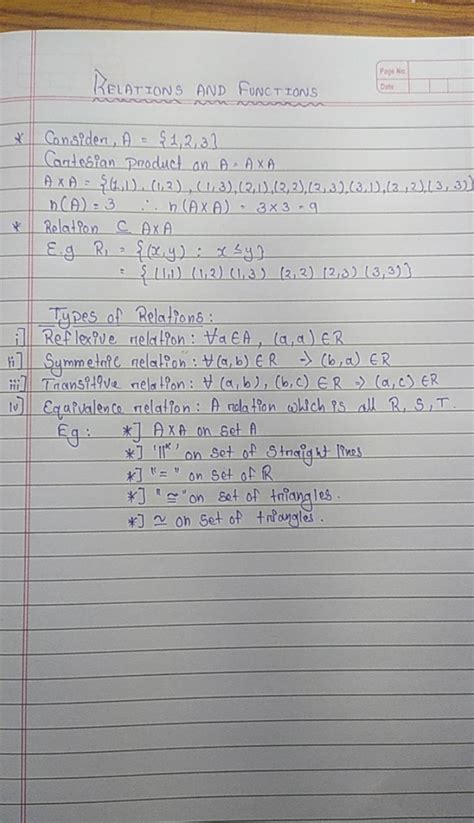 Page No.
Date
RELATIONS AND FUNCTIONS
* Consider, A = {1,2,3}
Cartesian product on A = A×A
A×A = {(1,1), (1,2), (1,3), (2,1), (2,2), (2,3), (3,1), (3,2), (3,3)}
n(A) = 3 ∴ n(A×A) = 3×3 = 9
* Relation ⊆ A×A
E.g R₁ = {(x,y) : x ≤ y}
= {(1,1) (1,2) (1,3) (2,2) (2,3) (3,3)}
Types of Relations:
i] Reflexive relation : ∀a∈A, (a,a) ∈R
ii] Symmetric relation : ∀(a,b) ∈ R → (b,a) ∈R
iii] Transitive relation : ∀ (a,b), (b,c) ∈ R ⇒ (a,c) ∈R
iv] Equivalence relation : A relation which is all R, S, T.
Eg: *] A×A on set A
*] "||" on set of straight lines
*] "=" on set of R
*] "≅" on set of triangles.
*] ≃ on set of triangles.